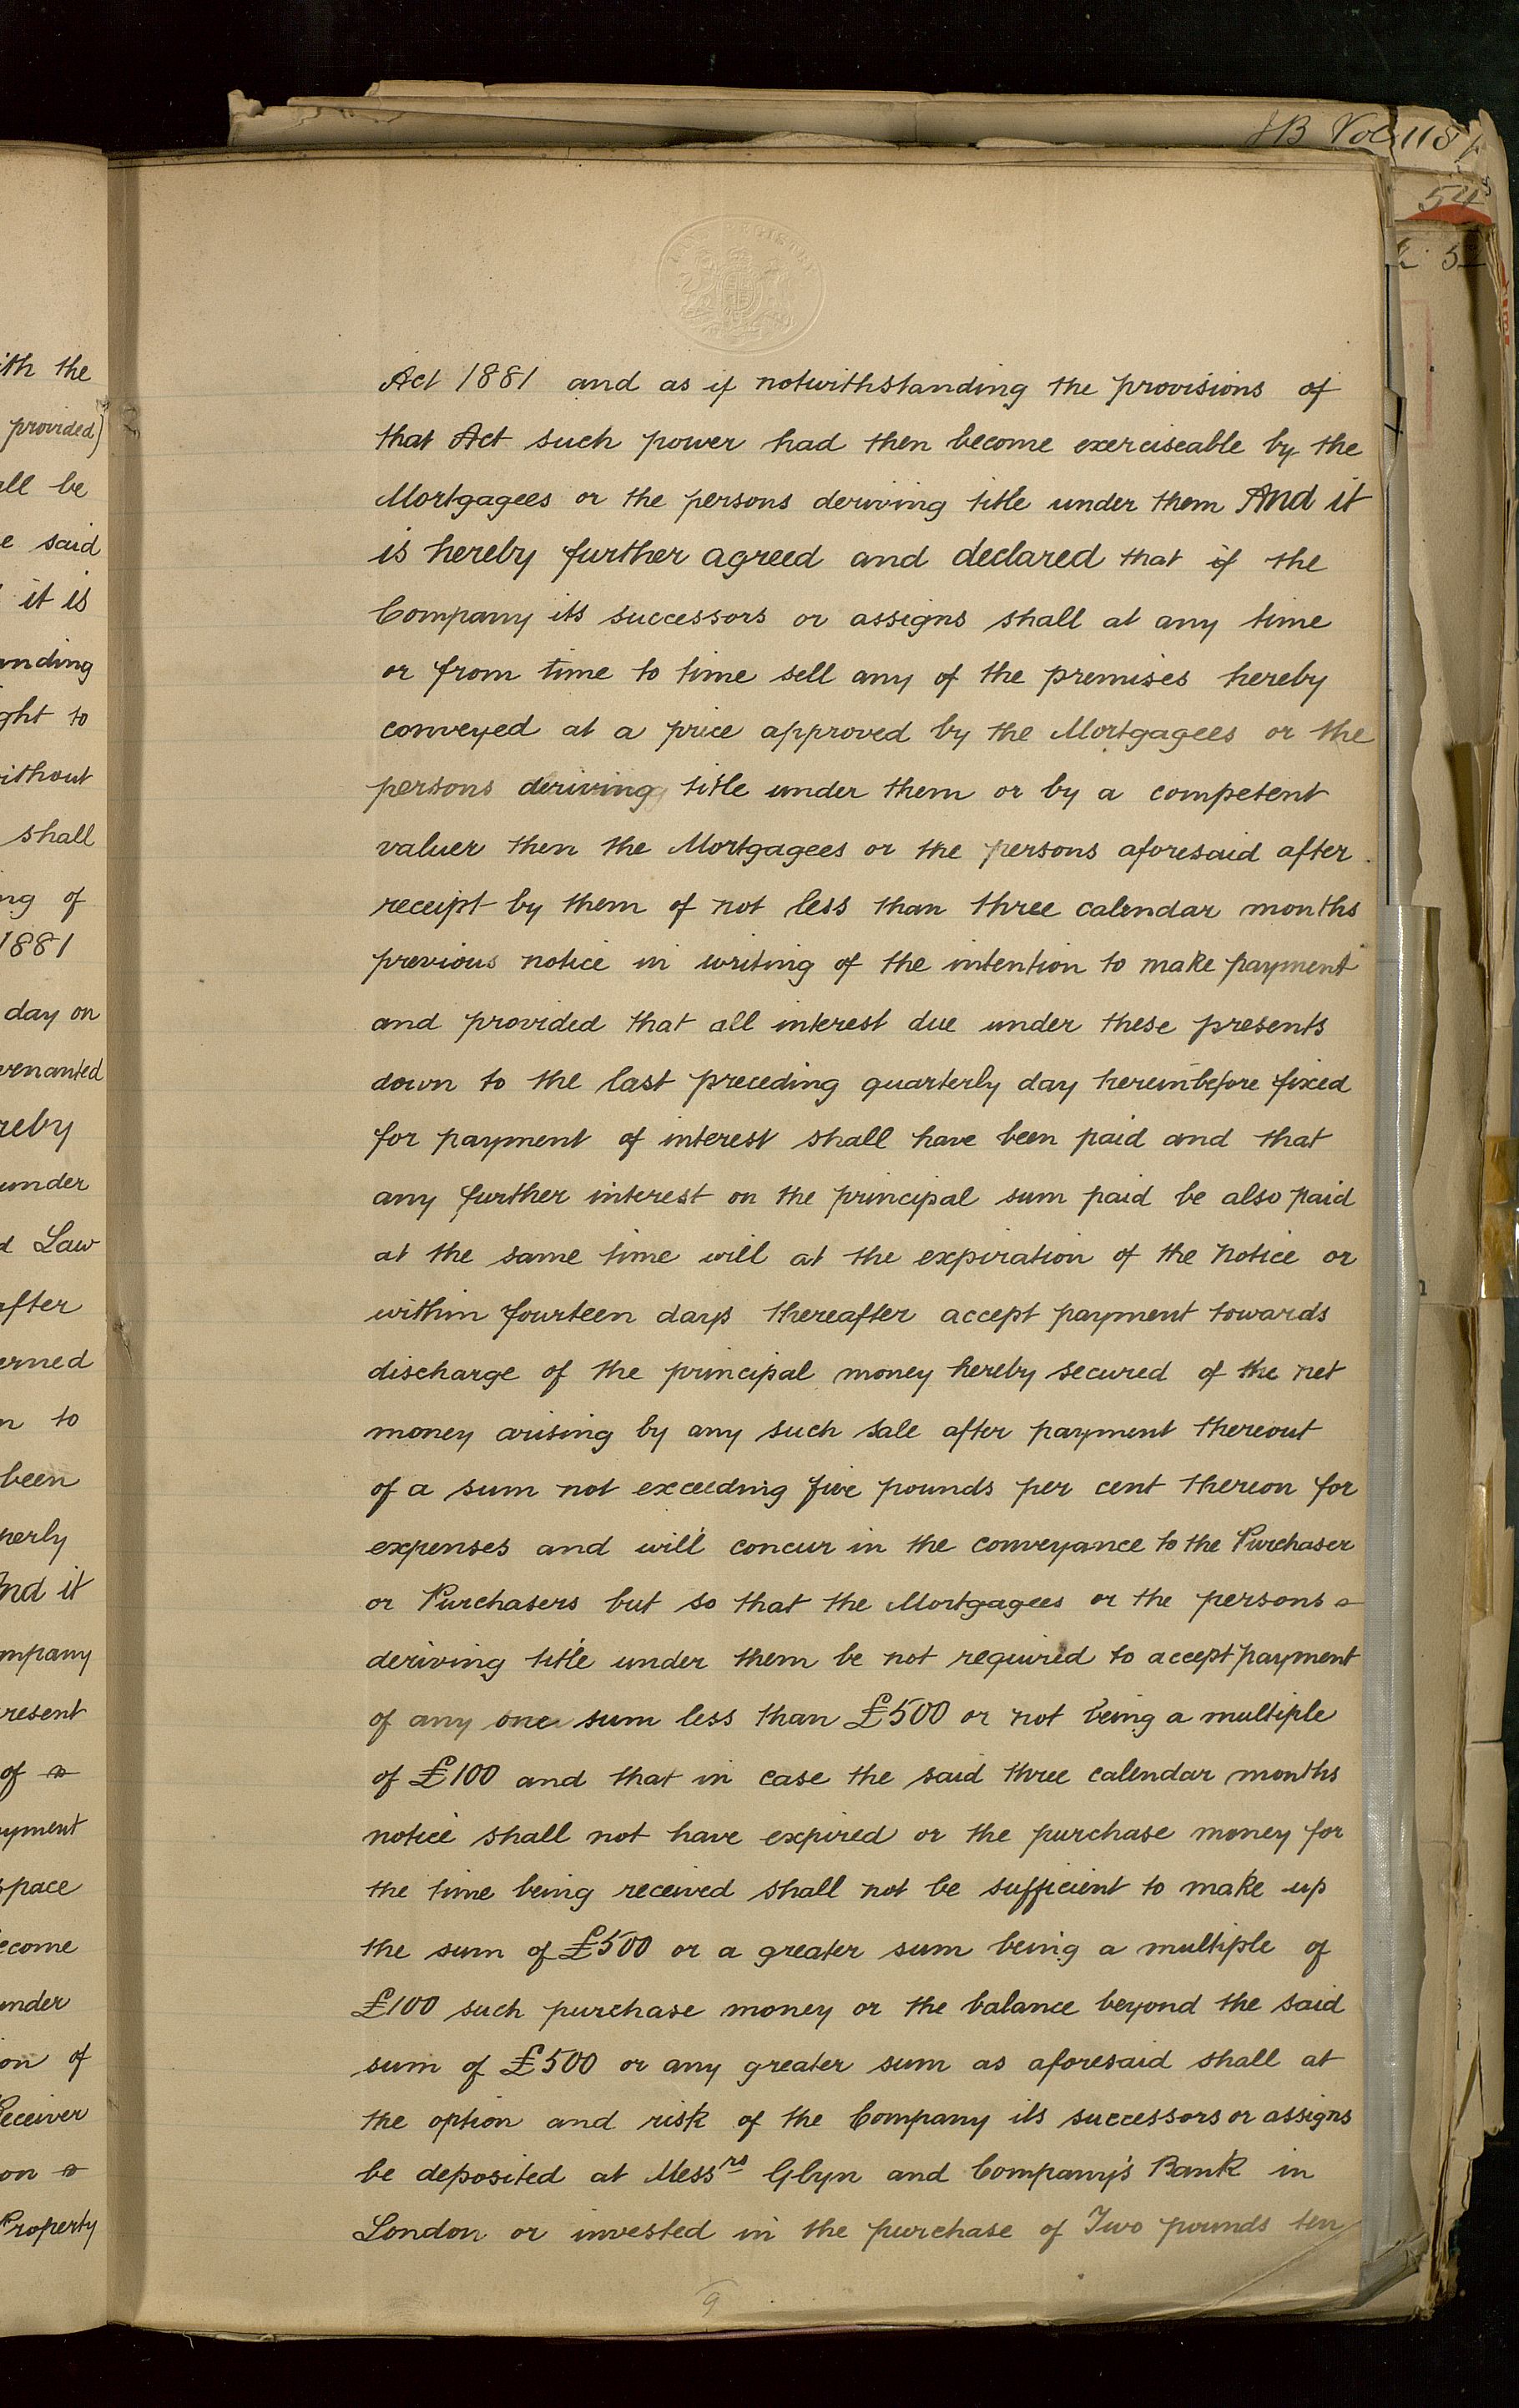 Act 1881 and as if notwithstanding the provisions of
that Act such power had then become exerciseable by the
Mortgagees or the persons deriving title under them And it
is hereby further agreed and declared that if the
Company its successors or assigns shall at any time
or from time to time sell any of the premises hereby
conveyed at a price approved by the Mortgagees or the
persons deriving title under them or by a competent
valuer then the Mortgagees or the persons aforesaid after
receipt by them of not less than three calendar months
previous notice in writing of the intention to make payment
and provided that all interest due under these presents
down to the last preceding quarterly day hereinbefore fixed
for payment of interest shall have been paid and that
any further interest on the principal sum paid be also paid
at the same time will at the expiration of the notice or
within fourteen days thereafter accept payment towards
discharge of the principal money hereby secured of the net
money arising by any such sale after payment thereout
of a sum not exceeding five pounds per cent thereon for
expenses and will concur in the conveyance to the Purchaser
or Purchasers but so that the Mortgagees or the persons
deriving title under them be not required to accept payment
of any one sum less than £500 or not being a multiple
of £100 and that in case the said three calendar months
notice shall not have expired or the purchase money for
the time being received shall not be sufficient to make up
the sum of £500 or a greater sum being a multiple of
£100 such purchase money or the balance beyond the said
sum of £500 or any greater sum as aforesaid shall at
the option and risk of the Company its successors or assigns
be deposited at Messrs Glyn and Company's Bank in
London or invested in the purchase of Two pounds ten
9
ith the
provided)
all be
e said
it is
anding
ght to
ithout
shall
ng of
1881
day on
venanted
reby
under
d Law
after
erned
n to
been
perly
And it
mpany
resent
of
yment
space
ecome
under
on of
Receiver
on
Property
Vol 118
54